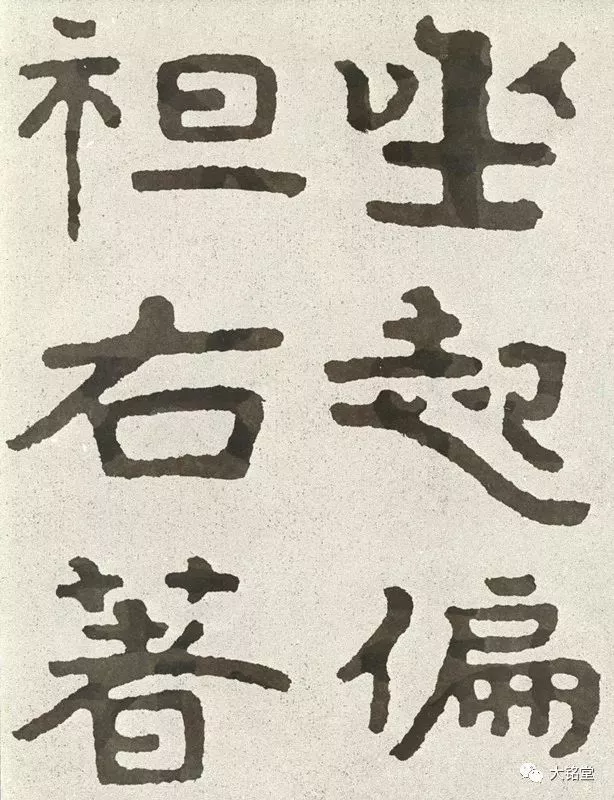 坐起偏
袒右著
大铭堂